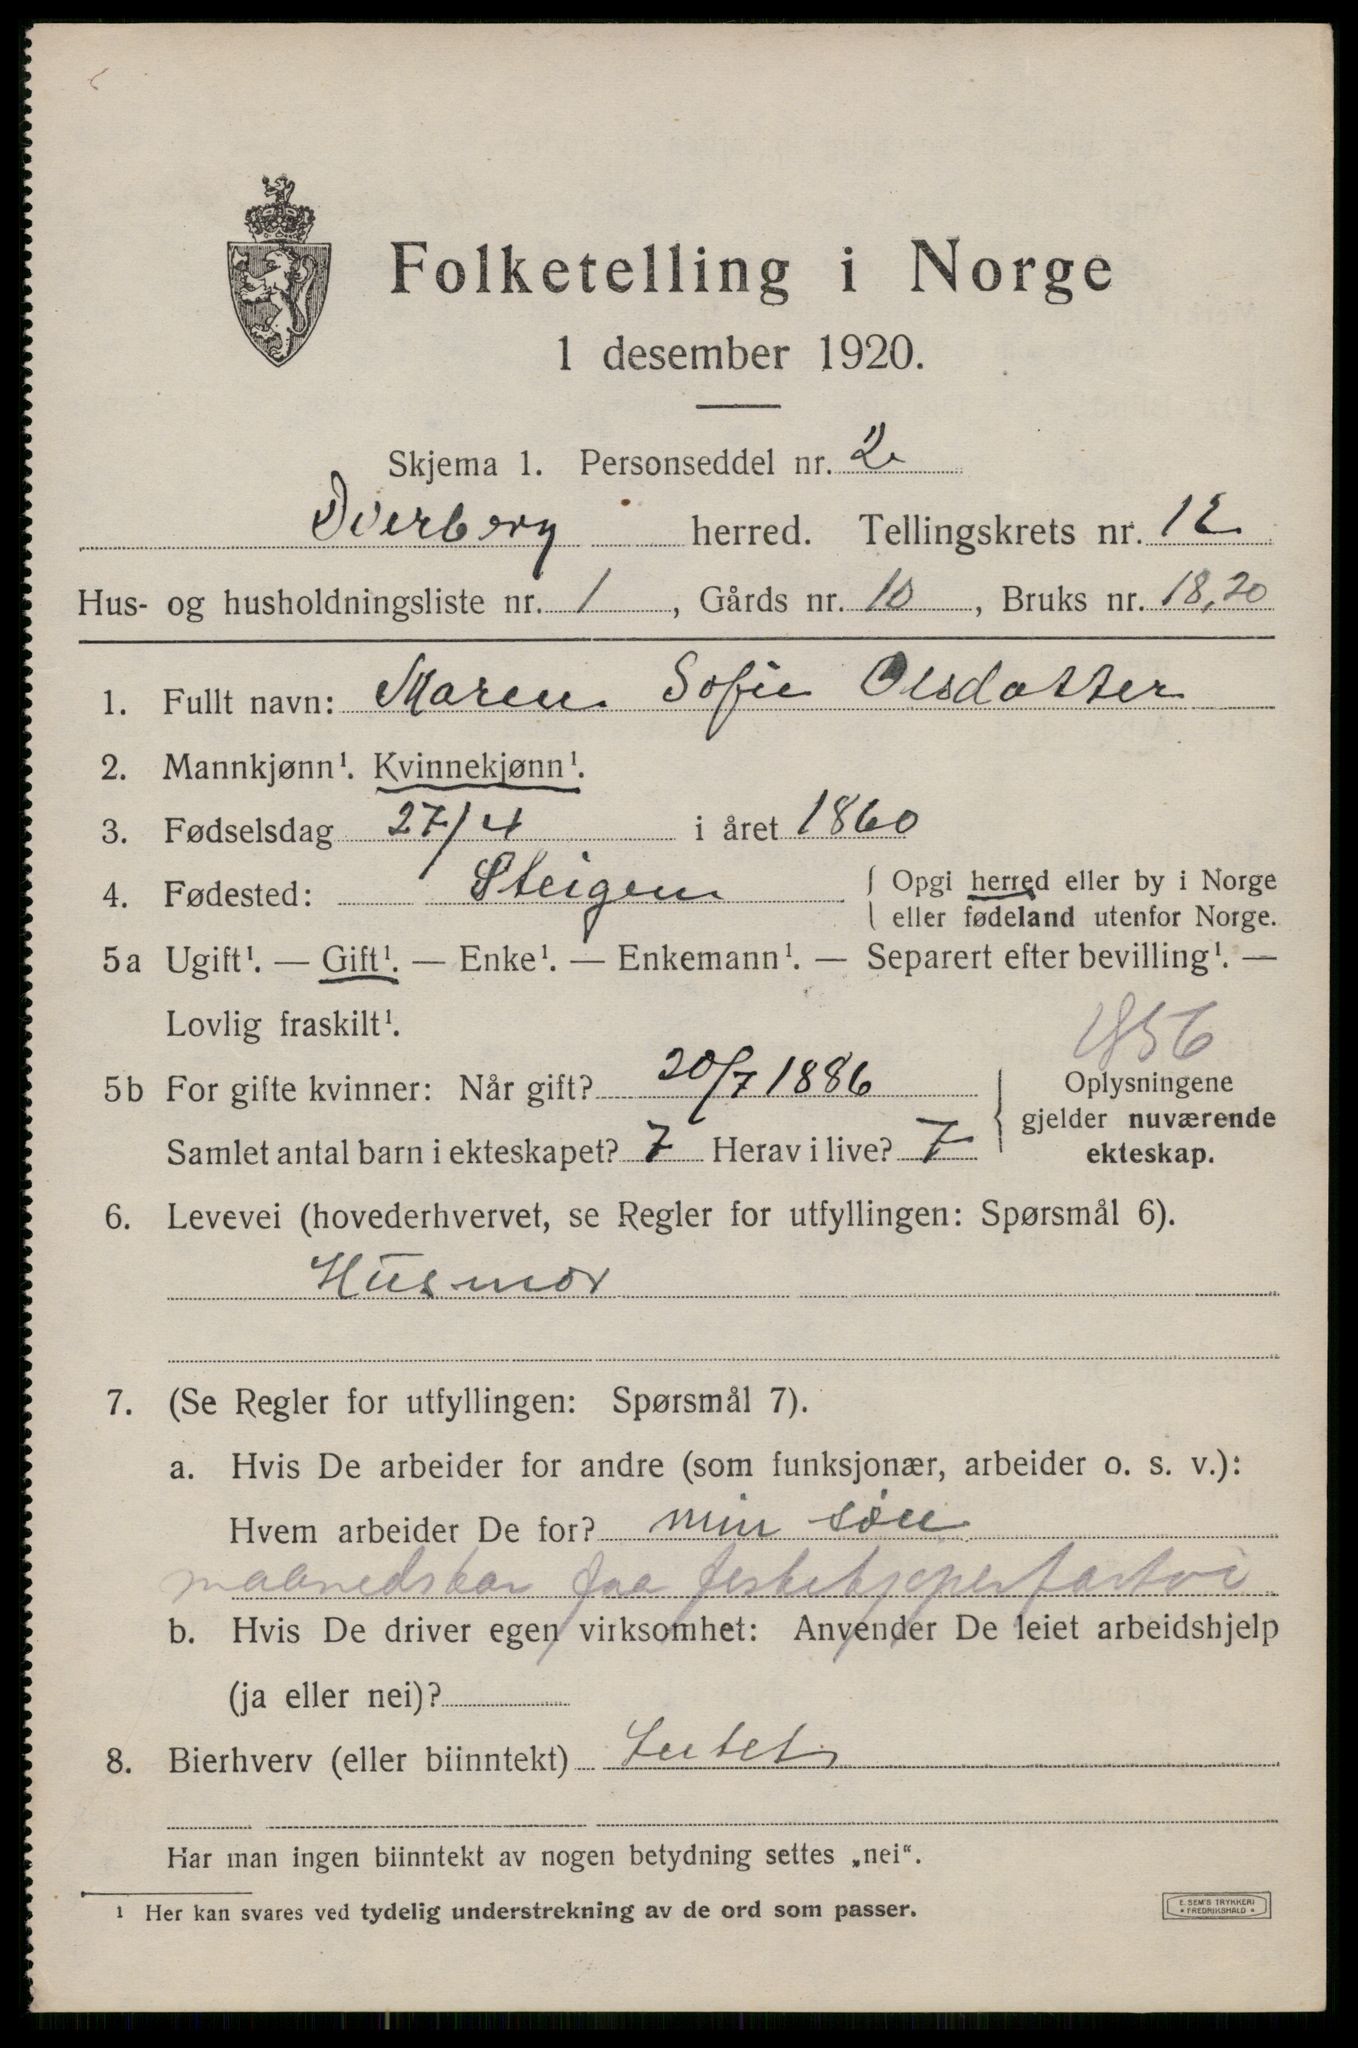 Folketelling i Norge
1 desember 1920.
Skjema 1. Personseddel nr. 2
Dverberg herred. Tellingskrets nr. 12
Hus- og husholdningsliste nr. 1, Gårds nr. 10, Bruks nr. 18,20
1. Fullt navn: Maren Sofie Olsdatter
2. Mannkjønn¹. Kvinnekjønn¹.
3. Fødselsdag 27/4 i året 1860
4. Fødested: Steigen { Opgi herred eller by i Norge
eller fødeland utenfor Norge.
5a Ugift¹. — Gift¹. — Enke¹. — Enkemann¹. — Separert efter bevilling¹. —
Lovlig fraskilt¹.
1856
5b For gifte kvinner: Når gift? 20/7 1886
Samlet antal barn i ekteskapet? 7 Herav i live? 7
{ Oplysningene
gjelder nuværende
ekteskap.
6. Levevei (hovederhvervet, se Regler for utfyllingen: Spørsmål 6).
Husmor
7. (Se Regler for utfyllingen: Spørsmål 7).
a. Hvis De arbeider for andre (som funksjonær, arbeider o. s. v.):
Hvem arbeider De for? min søn
b. Hvis De driver egen virksomhet: Anvender De leiet arbeidshjelp
(ja eller nei)?
8. Bierhverv (eller biinntekt) Intet
Har man ingen biinntekt av nogen betydning settes „nei“.
¹ Her kan svares ved tydelig understrekning av de ord som passer.
E. SEM'S TRYKKERI
* FREDRIKSHALD *